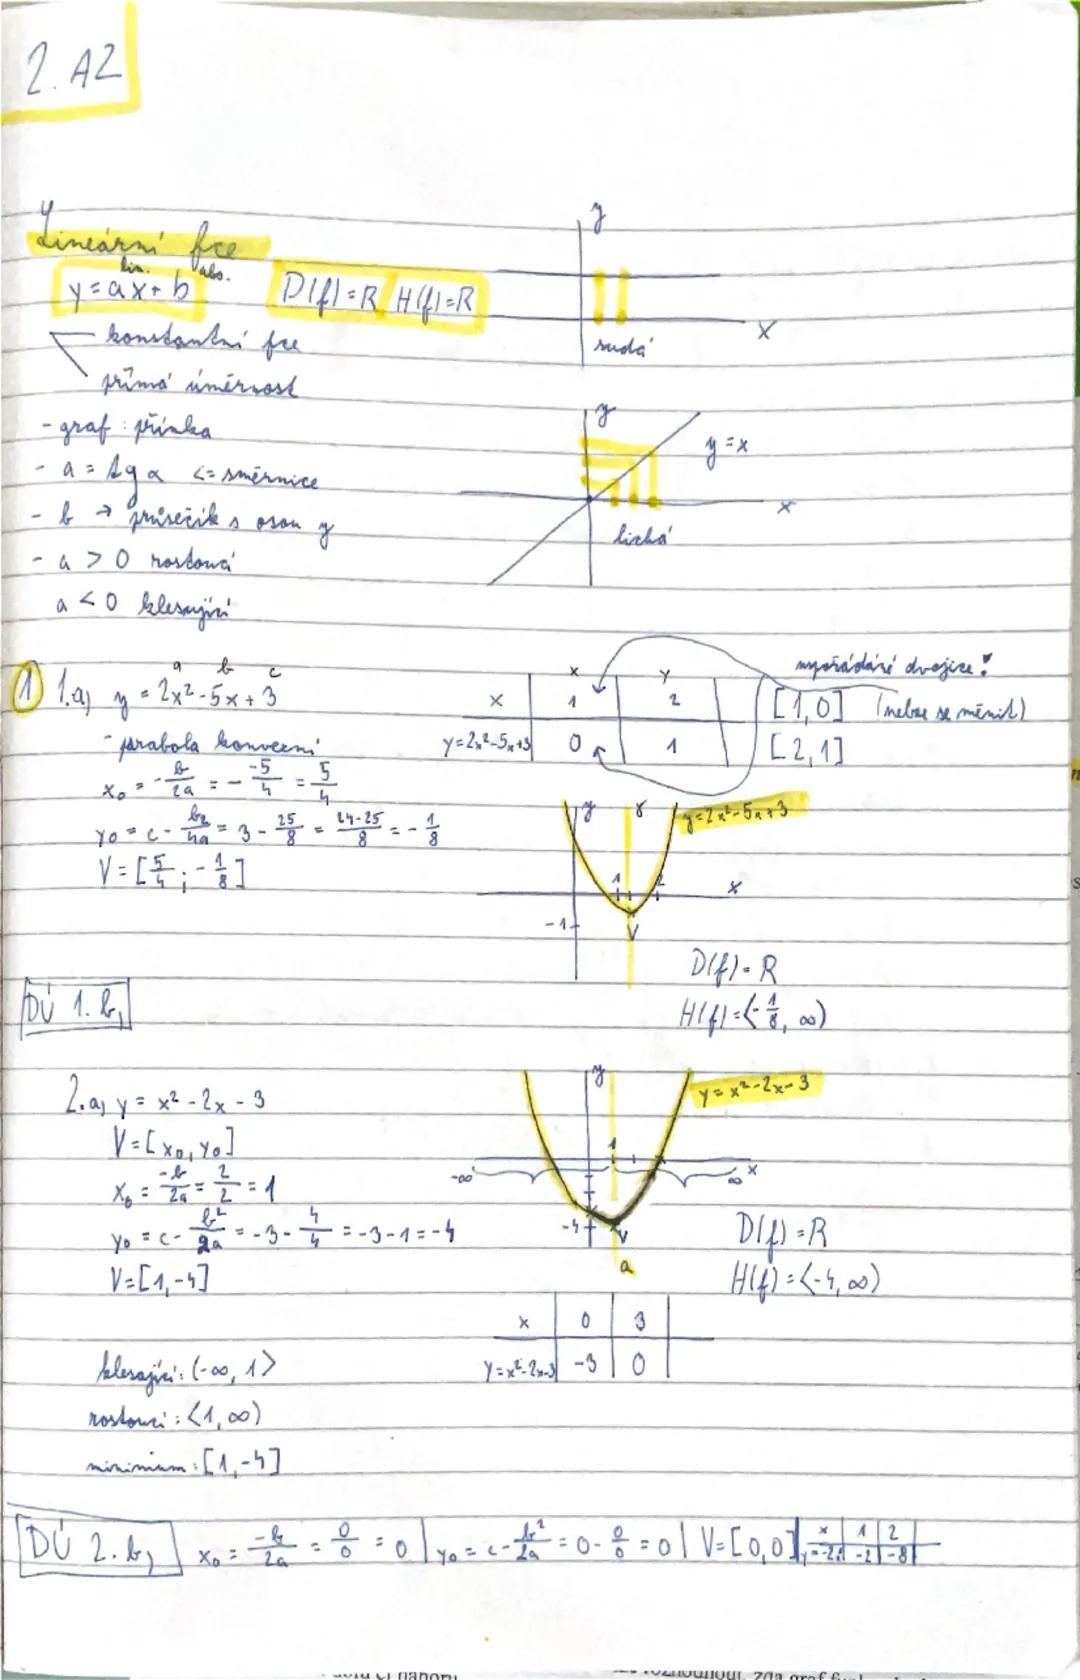 2. A2
Lineární fce
lin. abs.
y = ax + b D(f) = R H(f) = R
konstantní fce
přímá úměrnost
- graf : přímka
- a = tg α <= směrnice
- b → průsečík s osou y
- a > 0 rostoucí
a < 0 klesající
y
x
sudá
y
y = x
x
lichá
① 1.a) y = 2x² - 5x + 3
a b c
- parabola konvexní
x₀ = -b/2a = - -5/4 = 5/4
y₀ = c - b²/4a = 3 - 25/8 = 24-25/8 = - 1/8
V = [5/4 ; - 1/8]
x y
x 1 2
y = 2x² - 5x + 3 0 1
uspořádané dvojice!
[1,0] (nelze se měnit)
[2,1]
y y = 2x² - 5x + 3
1 2 x
-1
V
D(f) = R
H(f) = <-1/8, ∞)
DÚ 1. b,
2.a, y = x² - 2x - 3
V = [x₀, y₀]
x₀ = -b/2a = 2/2 = 1
y₀ = c - b²/2a = -3 - 4/4 = -3 - 1 = -4
V = [1, -4]
y y = x² - 2x - 3
1
-∞ ∞ x
-4
V
a
D(f) = R
H(f) = <-4, ∞)
x 0 3
y = x² - 2x - 3 -3 0
klesající : (-∞, 1>
rostoucí : <1, ∞)
minimum : [1, -4]
DÚ 2. b, x₀ = -b/2a = 0/0 = 0 | y₀ = c - b²/2a = 0 - 0/0 = 0 | V = [0,0]
x 1 2
-2 -8